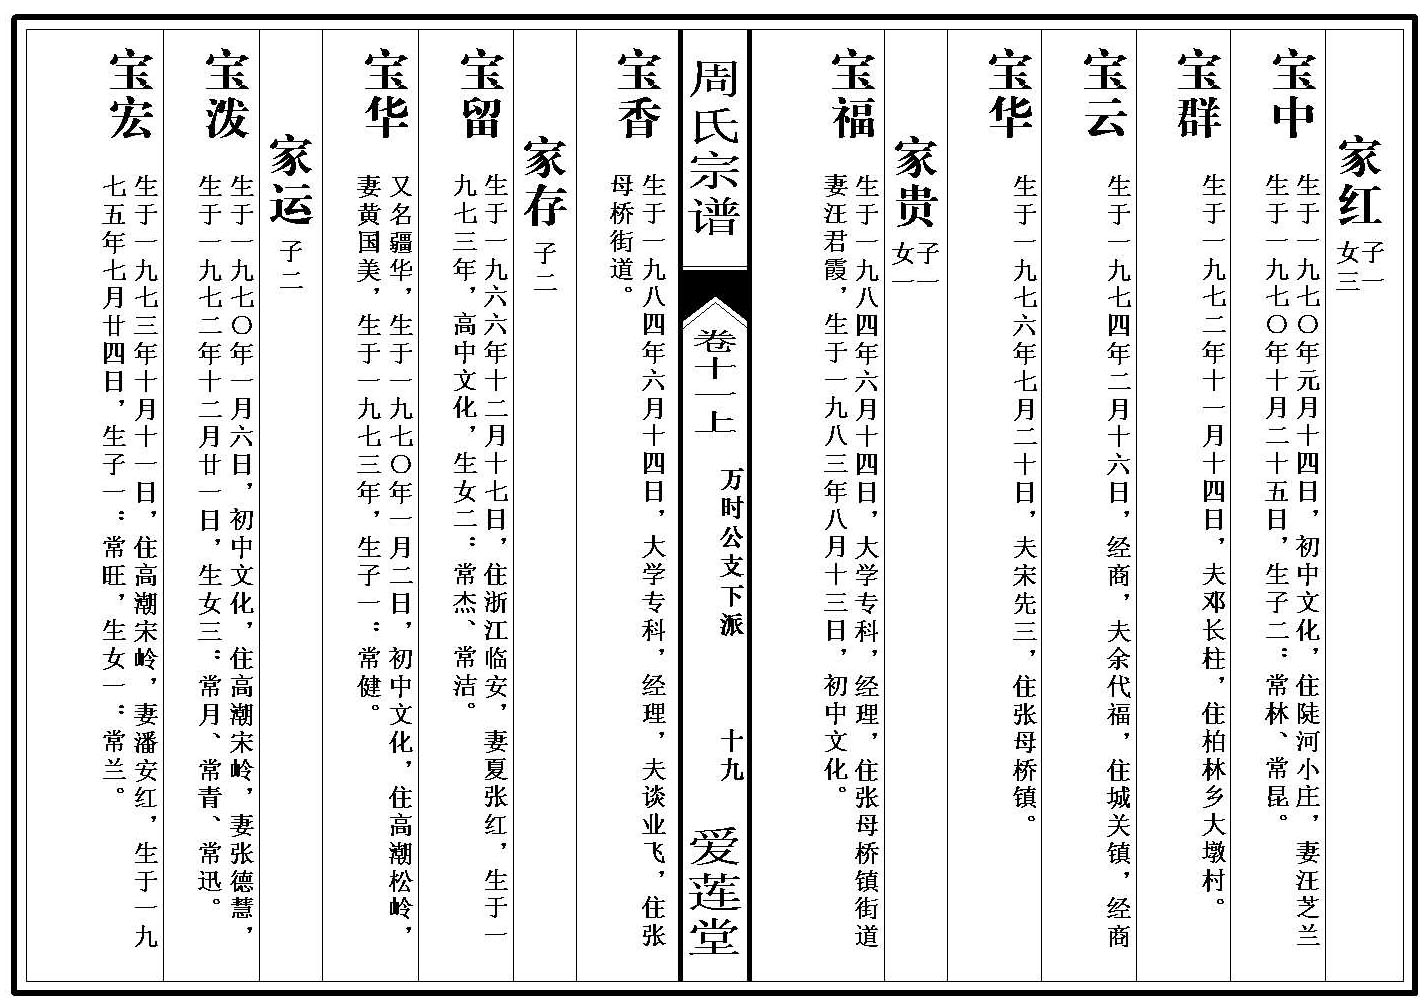 家红 子一
女三
宝中 生于一九七〇年元月十四日，初中文化，住陡河小庄，妻汪芝兰
生于一九七〇年十月二十五日，生子二：常林、常昆。
宝群 生于一九七二年十一月十四日，夫邓长柱，住柏林乡大墩村。
宝云 生于一九七四年二月十六日，经商，夫余代福，住城关镇，经商
宝华 生于一九七六年七月二十日，夫宋先三，住张母桥镇。
家贵 子一
女一
宝福 生于一九八四年六月十四日，大学专科，经理，住张母桥镇街道
妻汪君霞，生于一九八三年八月十三日，初中文化。
周氏宗谱
卷十一上
万时公支下派
十九
爱莲堂
宝香 生于一九八四年六月十四日，大学专科，经理，夫谈业飞，住张
母桥街道。
家存 子二
宝留 生于一九六六年十二月十七日，住浙江临安，妻夏张红，生于一
九七三年，高中文化，生女二：常杰、常洁。
宝华 又名疆华，生于一九七〇年一月二日，初中文化，住高潮松岭，
妻黄国美，生于一九七三年，生子一：常健。
家运 子二
宝泼 生于一九七〇年一月六日，初中文化，住高潮宋岭，妻张德慧，
生于一九七二年十二月廿一日，生女三：常月、常青、常迅。
宝宏 生于一九七三年十月十一日，住高潮宋岭，妻潘安红，生于一九
七五年七月廿四日，生子一：常旺，生女一：常兰。